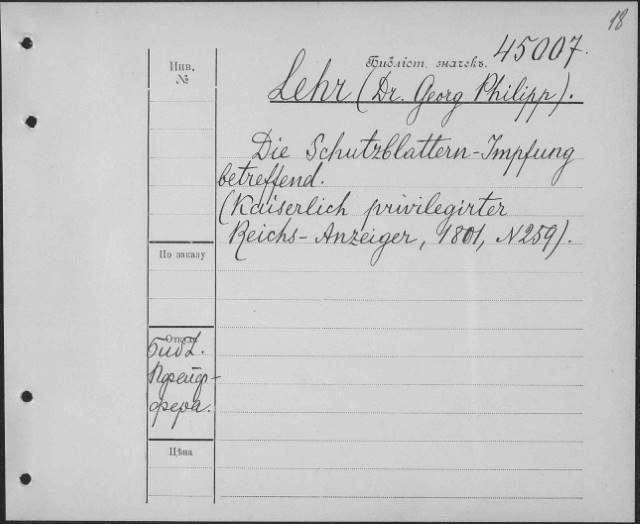 18
Библіот. значекъ. 45007.
Инв.
№
Lehr (Dr. Georg Philipp).
Die Schutzblattern-Impfung
betreffend.
(Kaiserlich privilegirter
Reichs-Anzeiger, 1801, N259).
По заказу
Откуда
Библ.
Пфейф-
фера.
Цѣна